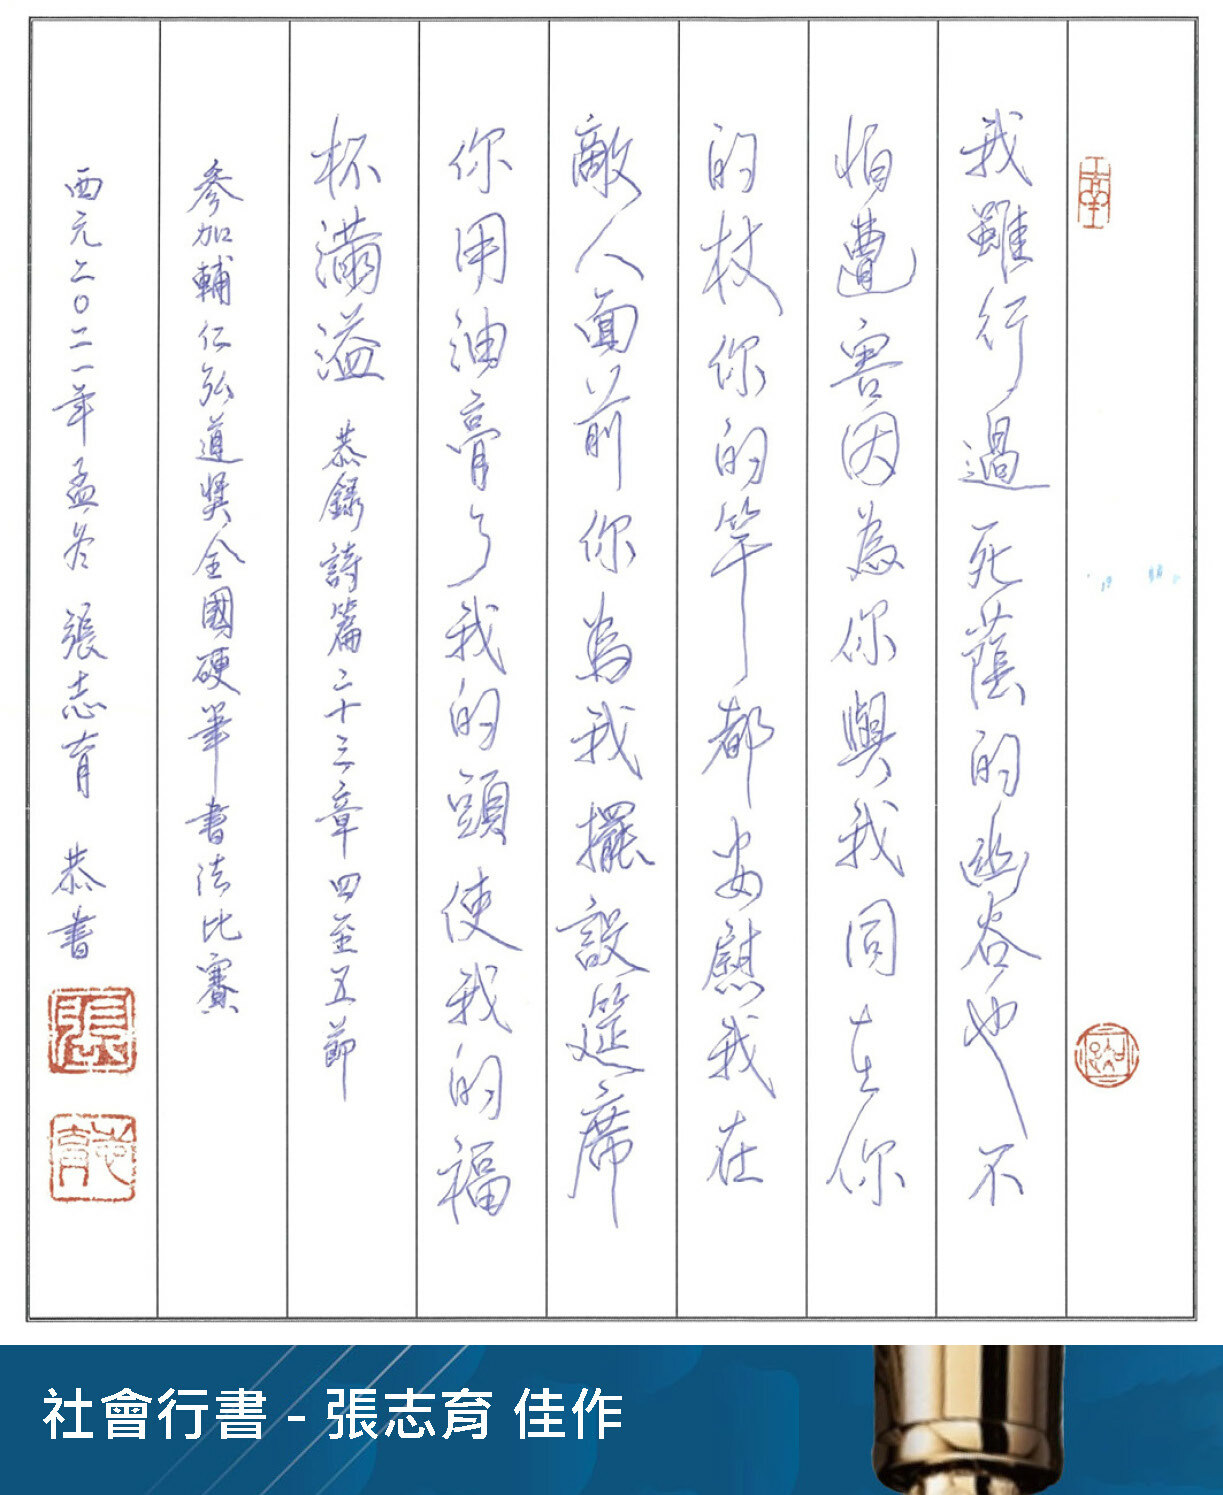 我雖行過死蔭的幽谷也不
怕遭害因為你與我同在你
的杖你的竿都安慰我在
敵人面前你為我擺設筵席
你用油膏了我的頭使我的福
杯滿溢 恭錄詩篇二十三章四至五節
參加輔仁弘道獎全國硬筆書法比賽
西元二〇二一年孟冬 張志育 恭書
張
志育
社會行書 - 張志育 佳作